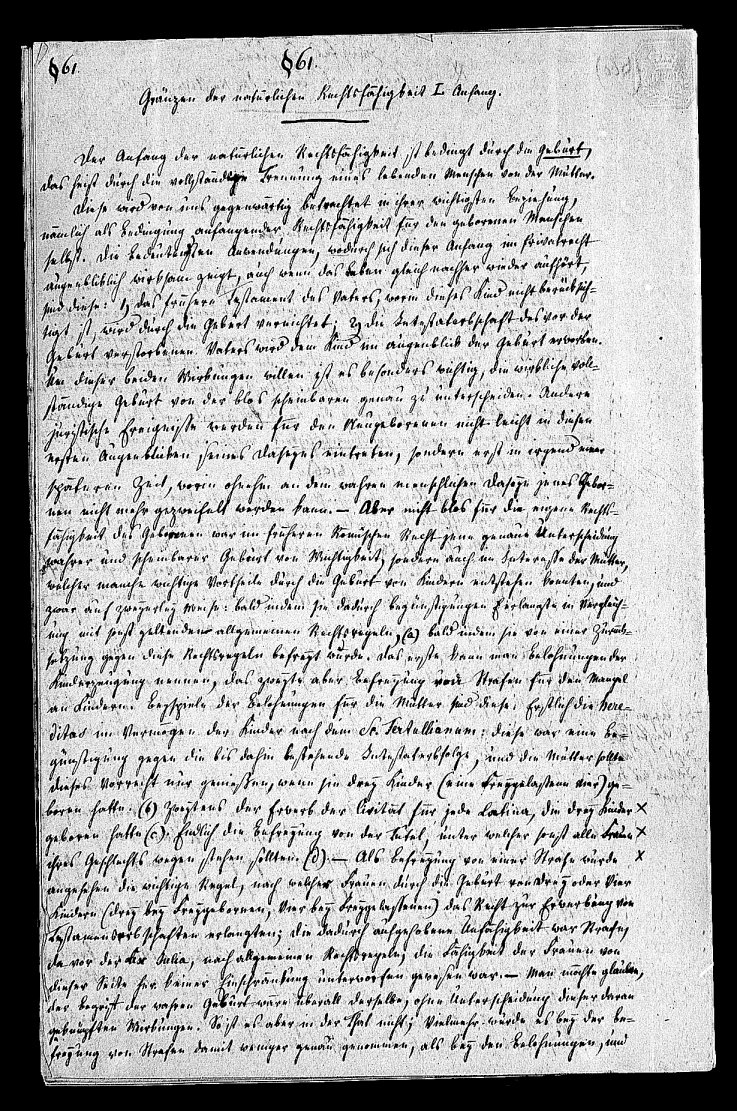 §61. §61.
Gränzen der natürlichen Rechtsfähigkeit I. Anfang.
Der Anfang der natürlichen Rechtsfähigkeit ist bedingt durch die Geburt,
das heist durch die vollständige Trennung eines lebenden Menschen von der Mutter.
Diese wird von uns gegenwärtig betrachtet in ihrer wichtigsten Beziehung,
nämlich als Bedingung anfangender Rechtsfähigkeit für den geborenen Menschen
selbst. Die bedeutendsten Anwendungen, wodurch sich dieser Anfang im Privatrecht
augenbliklich wirksam zeigt, auch wenn das Leben gleich nachher wieder aufhört,
sind diese: 1) Das frühere Testament des Vaters, worin dieses Kind nicht berüksich-
tigt ist, wird durch die Geburt vernichtet; 2) die Intestaterbschaft des vor der
Geburt verstorbenen Vaters wird dem Kind im Augenblik der Geburt erworben.
Um dieser beiden Wirkungen willen ist es besonders wichtig, die wirkliche voll-
ständige Geburt von der blos scheinbaren genau zu unterscheiden. Andere
juristische Ereignisse werden für den Neugeborenen nicht leicht in diesen
ersten Augenbliken seines Daseyns eintreten, sondern erst in irgend einer
späteren Zeit, worin ohnehin an dem wahren menschlichen Daseyn jenes Gebor-
nen nicht mehr gezweifelt werden kann. — Aber nicht blos für die eigene Rechts-
fähigkeit des Geborenen war im früheren Römischen Recht jene genaue Unterscheidung
wahrer und scheinbarer Geburt von Wichtigkeit, sondern auch im Interesse der Mutter,
welcher manche wichtige Vortheile durch die Geburt von Kindern entstehen konnten, und
zwar auf zweyerley Weise: bald indem sie dadurch begünstigungen erlangte in Vergleich-
ung mit sonst geltenden allgemeinen Rechtsregeln, (a) bald indem sie von einer Zurük-
setzung gegen diese Rechtsregeln befreyt wurde. Das erste kann man Belohnungen der
Kinderzeugung nennen, das zweyte aber Befreyung von Strafen für den Mangel
an Kindern. Beyspiele der Belohnungen für die Mutter sind diese. Erstlich die Here-
ditas im Vermögen der Kinder nach dem Sc. Tertullianum: diese war eine be-
günstigung gegen die bis dahin bestehende Intestaterbfolge, und die Mutter sollte
dieses Vorrecht nur geniessen, wenn sie drey Kinder (eine Freygelassene vier) ge-
boren hatte. (b) Zweytens der Erwerb der Civität für jede Latina, die drey Kinder ×
geboren hatte (c). Endlich die Befreyung von der Tutel, unter welcher sonst alle Frauen ×
ihres Geschlechts wegen stehen sollten. (d). — Als Befreyung von einer Strafe wurde ×
angesehen die wichtige Regel, nach welcher Frauen durch die Geburt von drey oder vier
Kindern (drey bey Freygebornen, vier bey Freygelassenen) das Recht zur Erwerbung von
Testamentserbschaften erlangten; die dadurch aufgehobene Unfähigkeit war Strafe,
da vor der Lex Julia, nach allgemeinen Rechtsregeln, die Fähigkeit der Frauen von
dieser Seite her keiner Einschränkung unterworfen gewesen war. — Man möchte glauben,
der begriff der wahren Geburt wäre überall derselbe, ohne Unterscheidung dieser daran
geknüpften Wirkungen. So ist es aber in der That nicht; vielmehr wurde es bey der Be-
freyung von Strafen damit weniger genau genommen, als bey den Belohnungen, und